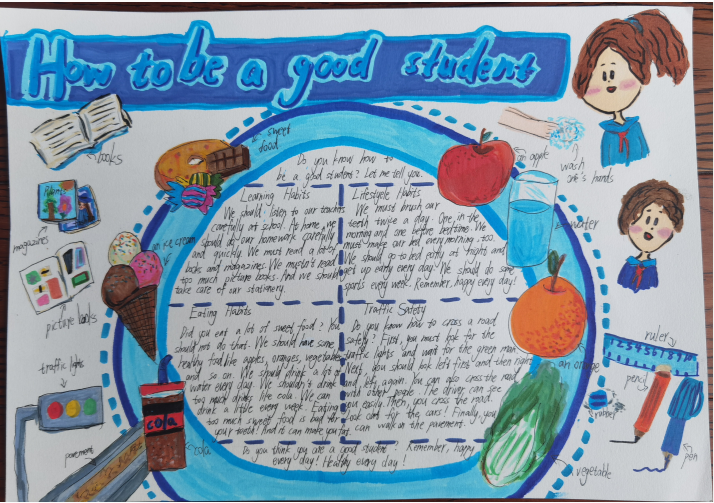 How to be a good student
Do you know how to
be a good student? Let me tell you.
Learning Habits
We should listen to our teachers
carefully at school. At home, we
should do our homework carefully
and quickly. We must read a lot of
books and magazines. We mustn't read
too much picture books. And we should
take care of our stationery.
Lifestyle Habits
We must brush our
teeth twice a day. One in the
morning and one before bedtime. We
must make our bed every morning, too.
We should go to bed early at night and
get up early every day. We should do some
sports every week. Remember, happy every day!
Eating Habits
Did you eat a lot of sweet food? You
should not do that. We should have some
healthy food like apples, oranges, vegetables
and so on. We should drink a lot of
water every day. We shouldn't drink
too much drinks like cola. We can
drink a little every week. Eating
too much sweet food is bad for
your teeth! And it can make you fat.
Traffic Safety
Do you know how to cross a road
safely? First, you must look for the
traffic lights and wait for the green man.
Next, you should look left first and then right
and left again. You can also cross the road
with other people. The driver can see
you easily. Then, you cross the road.
Look out for the cars! Finally, you
can walk on the pavement.
Do you think you are a good student? Remember, happy
every day! Healthy every day!
books
magazines
picture books
traffic lights
pavement
sweet
food
an ice cream
cola
cola
an apple
wash
one's hands
water
an orange
vegetable
ruler
1 2 3 4 5 6 7 8 9
pencil
rubber
pen